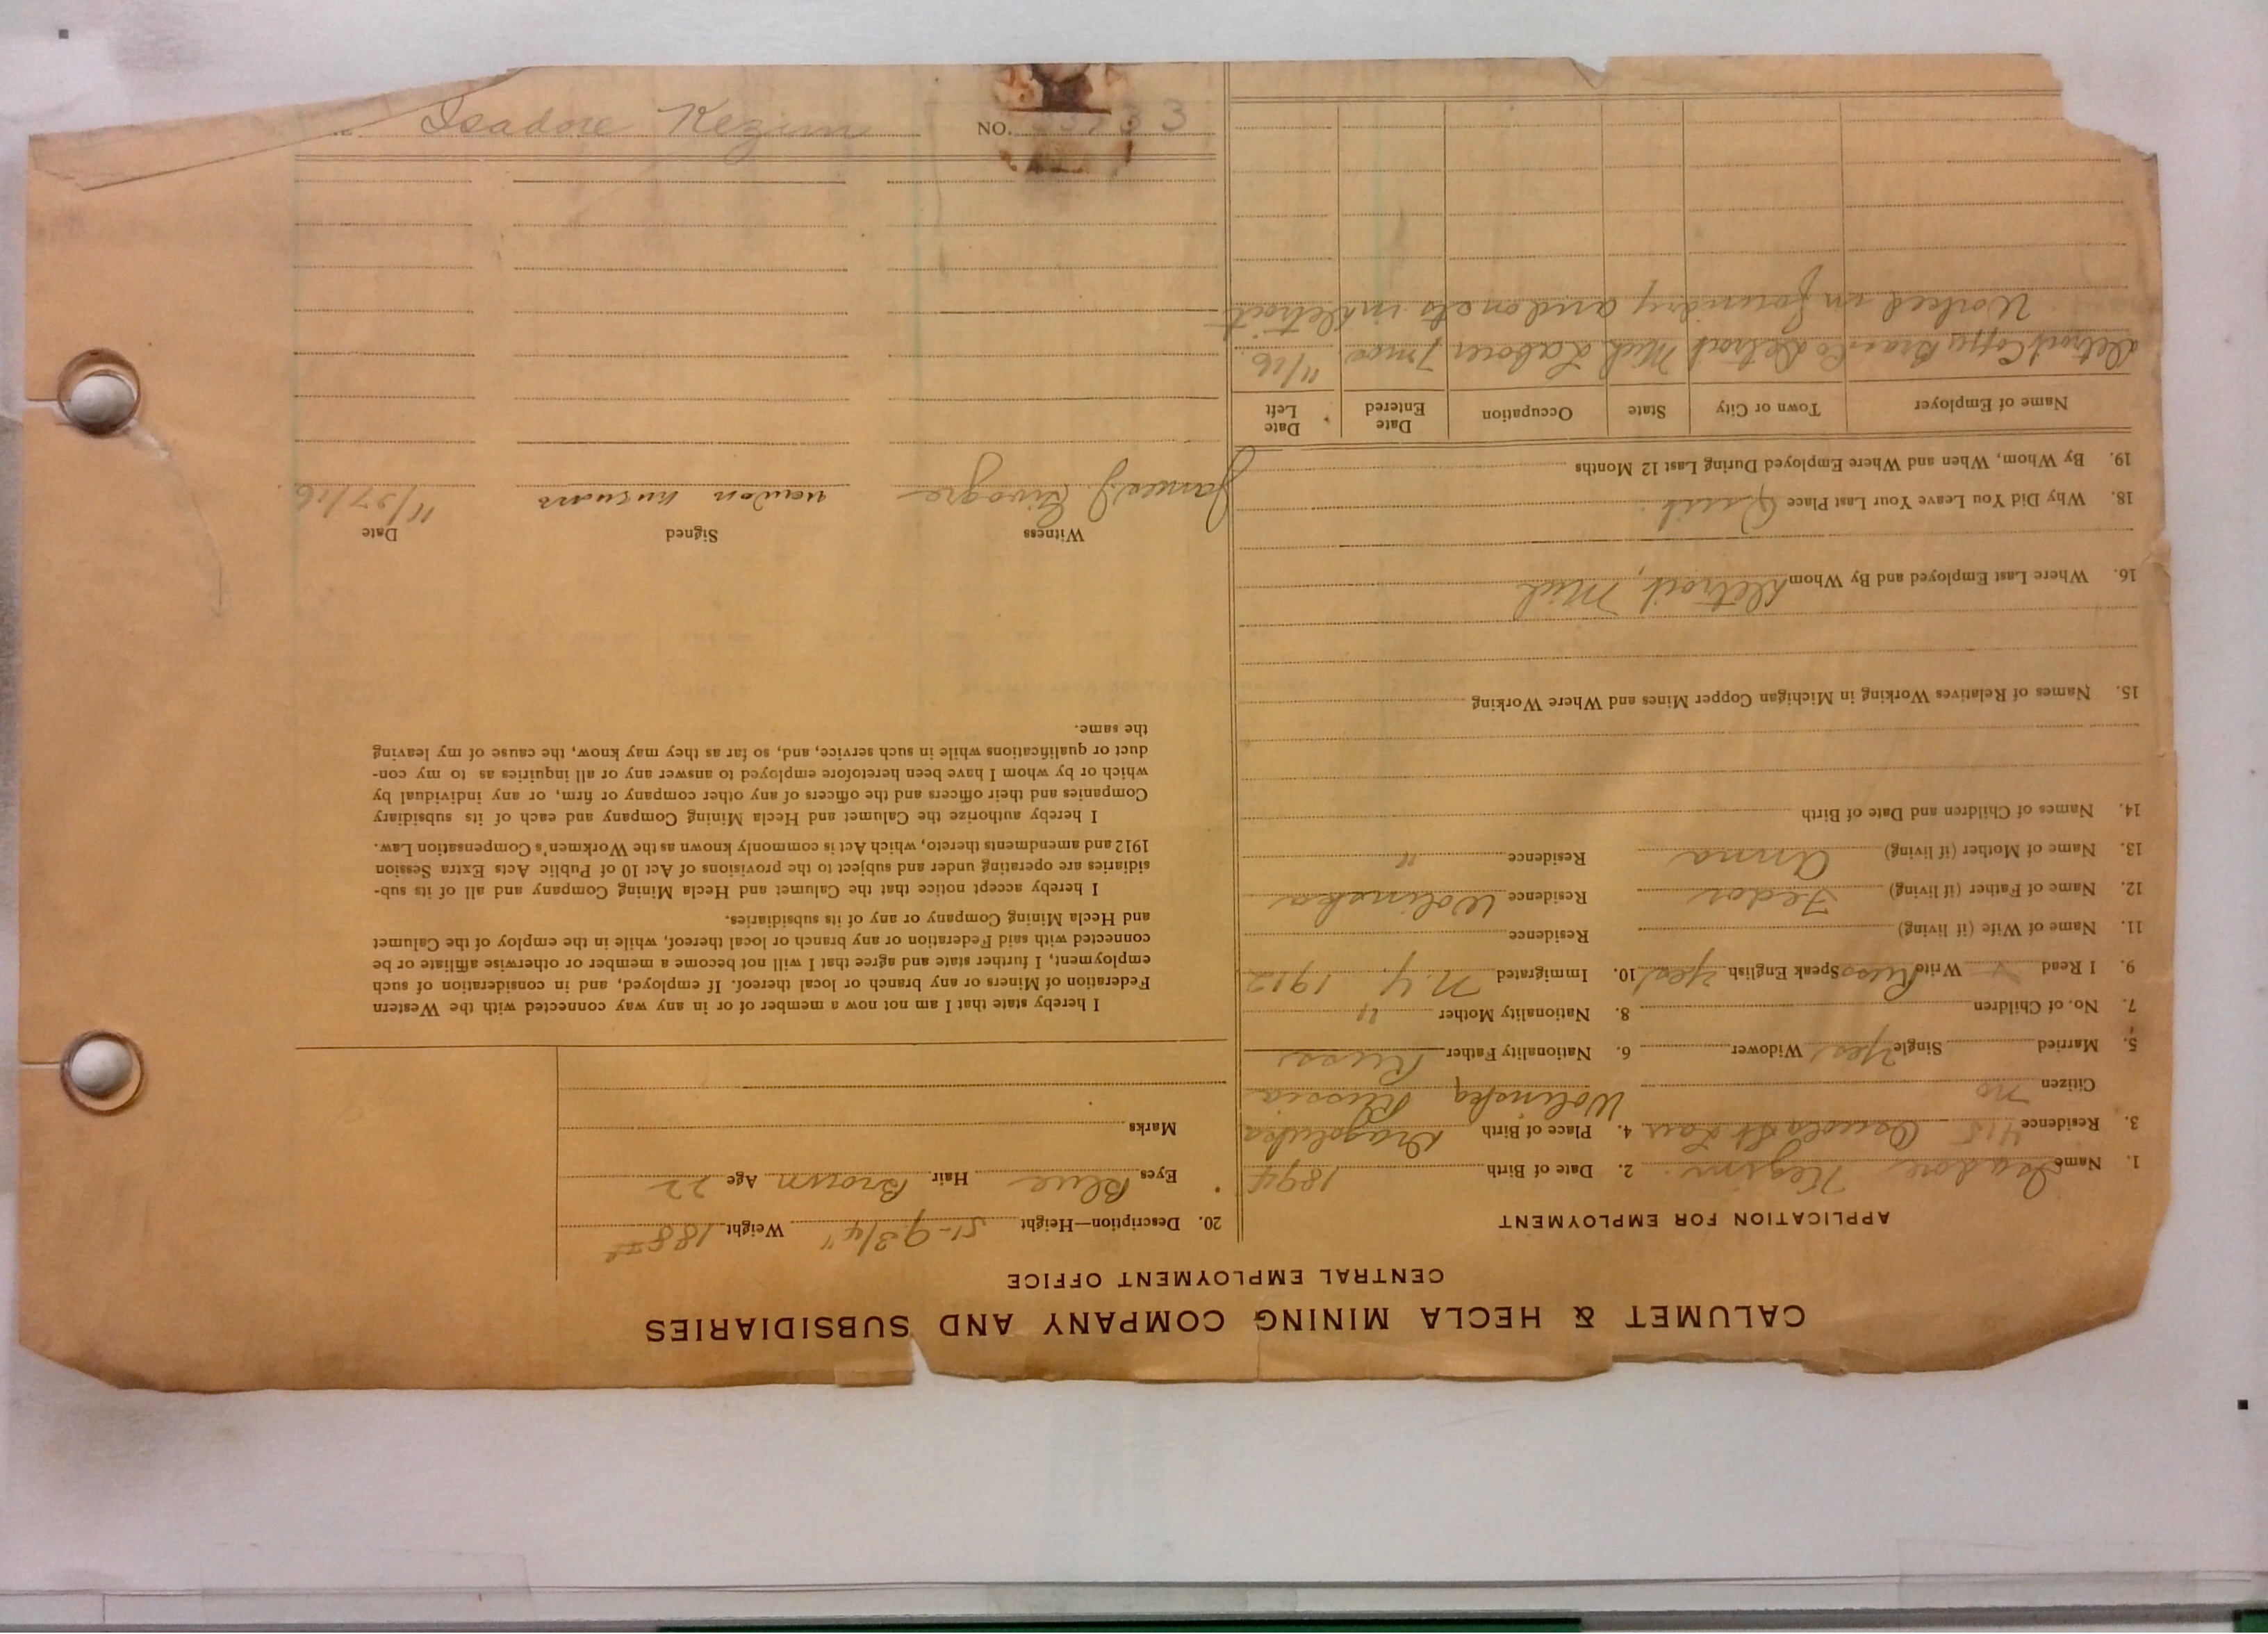 CALUMET & HECLA MINING COMPANY AND SUBSIDIARIES
CENTRAL EMPLOYMENT OFFICE
APPLICATION FOR EMPLOYMENT
1. Name Isadore 2. Date of Birth 1894
3. Residence 415 Osceola St Lau 4. Place of Birth
Citizen no Wolinska Russia
5. Married Single Yes Widower 6. Nationality Father Russ
7. No. of Children 8. Nationality Mother "
9. I Read Write Russ Speak English Yes 10. Immigrated N.Y. 1912
11. Name of Wife (if living) Residence
12. Name of Father (if living) Fedor Residence Wolinska
13. Name of Mother (if living) Anna Residence "
14. Names of Children and Date of Birth
15. Names of Relatives Working in Michigan Copper Mines and Where Working
16. Where Last Employed and By Whom Detroit, Mich
18. Why Did You Leave Your Last Place Quit.
19. By Whom, When and Where Employed During Last 12 Months
Name of Employer Town or City State Occupation Date Entered Date Left
Detroit Copper Brass Co Detroit Mich Laborer 7 mos 11/16
Worked in foundry in Detroit
20. Description—Height 5'-9 3/4" Weight 188
Eyes Blue Hair Brown Age 22
Marks
I hereby state that I am not now a member of or in any way connected with the Western
Federation of Miners or any branch or local thereof. If employed, and in consideration of such
employment, I further state and agree that I will not become a member or otherwise affiliate or be
connected with said Federation or any branch or local thereof, while in the employ of the Calumet
and Hecla Mining Company or any of its subsidiaries.
I hereby accept notice that the Calumet and Hecla Mining Company and all of its sub-
sidiaries are operating under and subject to the provisions of Act 10 of Public Acts Extra Session
1912 and amendments thereto, which Act is commonly known as the Workmen's Compensation Law.
I hereby authorize the Calumet and Hecla Mining Company and each of its subsidiary
Companies and their officers and the officers of any other company or firm, or any individual by
which or by whom I have been heretofore employed to answer any or all inquiries as to my con-
duct or qualifications while in such service, and, so far as they may know, the cause of my leaving
the same.
Witness Signed Date
James J. 11/27/16
Isadore Kezim NO.